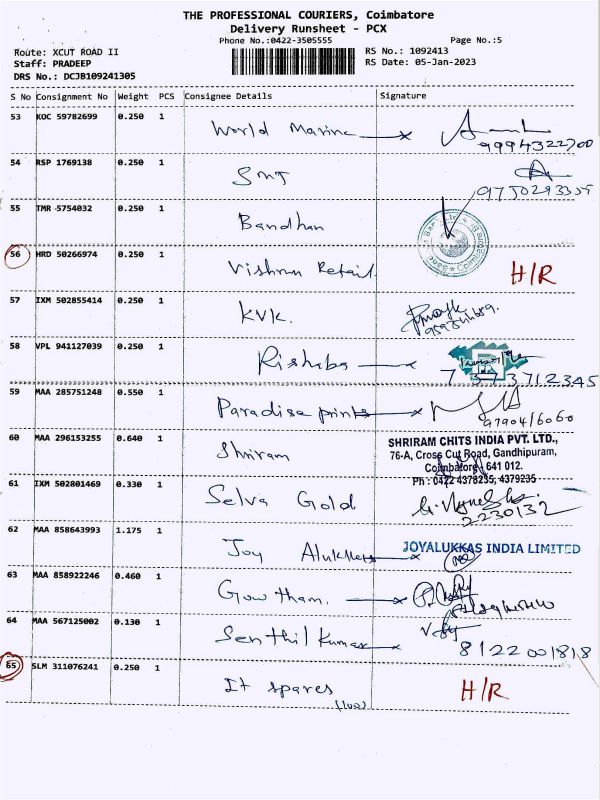 THE PROFESSIONAL COURIERS, Coimbatore
Delivery Runsheet - PCX
Phone No.:0422-3505555 Page No.:5
Route: XCUT ROAD II RS No.: 1092413
Staff: PRADEEP RS Date: 05-Jan-2023
DRS No.: DCJB109241305
S No Consignment No Weight PCS Consignee Details Signature
53 KOC 59782699 0.250 1 World Marine
9994322700
54 RSP 1769138 0.250 1 SMT
55 TMR 5754032 0.250 1 Bandhan
56 HRD 50266974 0.250 1 Vishnu Retail H/R
57 IXM 502855414 0.250 1 KVK.
58 VPL 941127039 0.250 1 Rishaba
7373712345
59 MAA 285751248 0.550 1 Paradise prints
97904/6060
60 MAA 296153255 0.640 1 Shriram
SHRIRAM CHITS INDIA PVT. LTD.,
76-A, Cross Cut Road, Gandhipuram,
Coimbatore - 641 012.
Ph : 0422 4378235, 4379235
61 IXM 502801469 0.330 1 Selva Gold
2230132
62 MAA 858643993 1.175 1 Joy Alukkas
JOYALUKKAS INDIA LIMITED
63 MAA 858922246 0.460 1 Gowtham.
64 MAA 567125002 0.130 1 Senthil Kumar
8122001818
65 SLM 311076241 0.250 1 It spares H/R